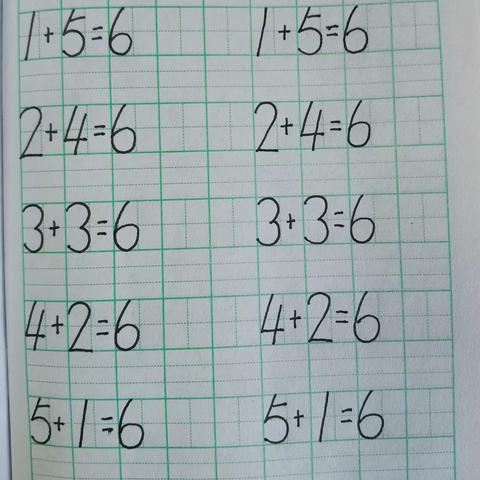 1+5=6 1+5=6
2+4=6 2+4=6
3+3=6 3+3=6
4+2=6 4+2=6
5+1=6 5+1=6